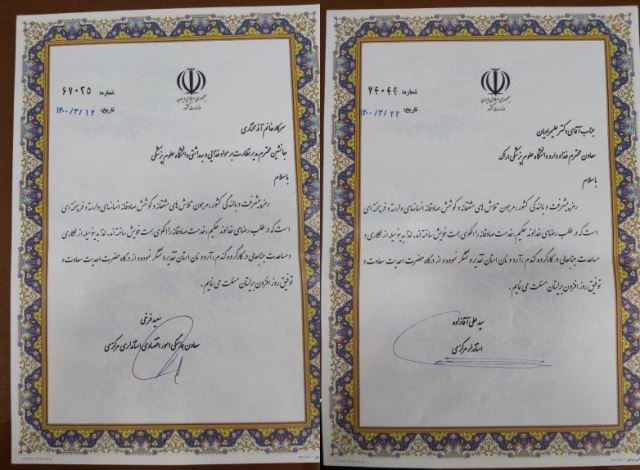 جمهوری اسلامی ایران
وزارت کشور
شماره: ۶۷۰۲۵
تاریخ: ۱۴۰۰/۳/۱۲
سرکار خانم آذختاری
جانشین محترم مدیر نظارت بر مواد غذایی و بهداشتی دانشگاه علوم پزشکی
با سلام
رمز پیشرفت و بالندگی کشور، مرهون تلاش های مشفقانه و کوشش صادقانه انسانهای وارسته و فرهیخته ای
است که در طلب رضای خداوند حکیم، خدمت صادقانه را الگوی همت خویش ساخته اند. لذا بدینوسیله از همکاری و
مساعدت جنابعالی در کارگروه گندم، آرد و نان استان تقدیر و تشکر نموده و از درگاه حضرت احدیت سعادت و
توفیق روز افزون برایتان مسئلت می نمایم.
سعید فرخی
معاون هماهنگی امور اقتصادی استانداری مرکزی
جمهوری اسلامی ایران
وزارت کشور
شماره: ۷۴۰۴۴
تاریخ: ۱۴۰۰/۳/۲۲
جناب آقای دکتر علیمرادیان
معاون محترم غذا و دارو دانشگاه علوم پزشکی اراک
با سلام
رمز پیشرفت و بالندگی کشور، مرهون تلاش های مشفقانه و کوشش صادقانه انسانهای وارسته و فرهیخته ای
است که در طلب رضای خداوند حکیم، خدمت صادقانه را الگوی همت خویش ساخته اند. لذا بدینوسیله از همکاری و
مساعدت جنابعالی در کارگروه گندم، آرد و نان استان تقدیر و تشکر نموده و از درگاه حضرت احدیت سعادت و
توفیق روز افزون برایتان مسئلت می نمایم.
سید علی آقازاده
استاندار مرکزی